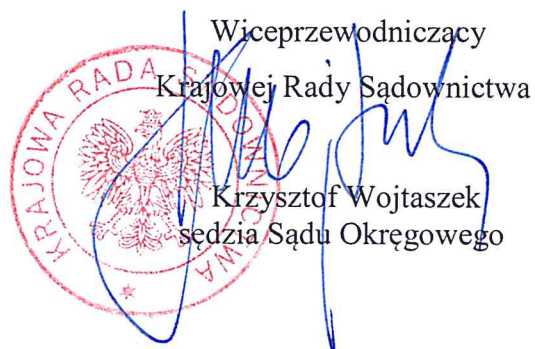 Wiceprzewodniczący
Krajowej Rady Sądownictwa
Krzysztof Wojtaszek
sędzia Sądu Okręgowego
KRAJOWA RADA SĄDOWNICTWA